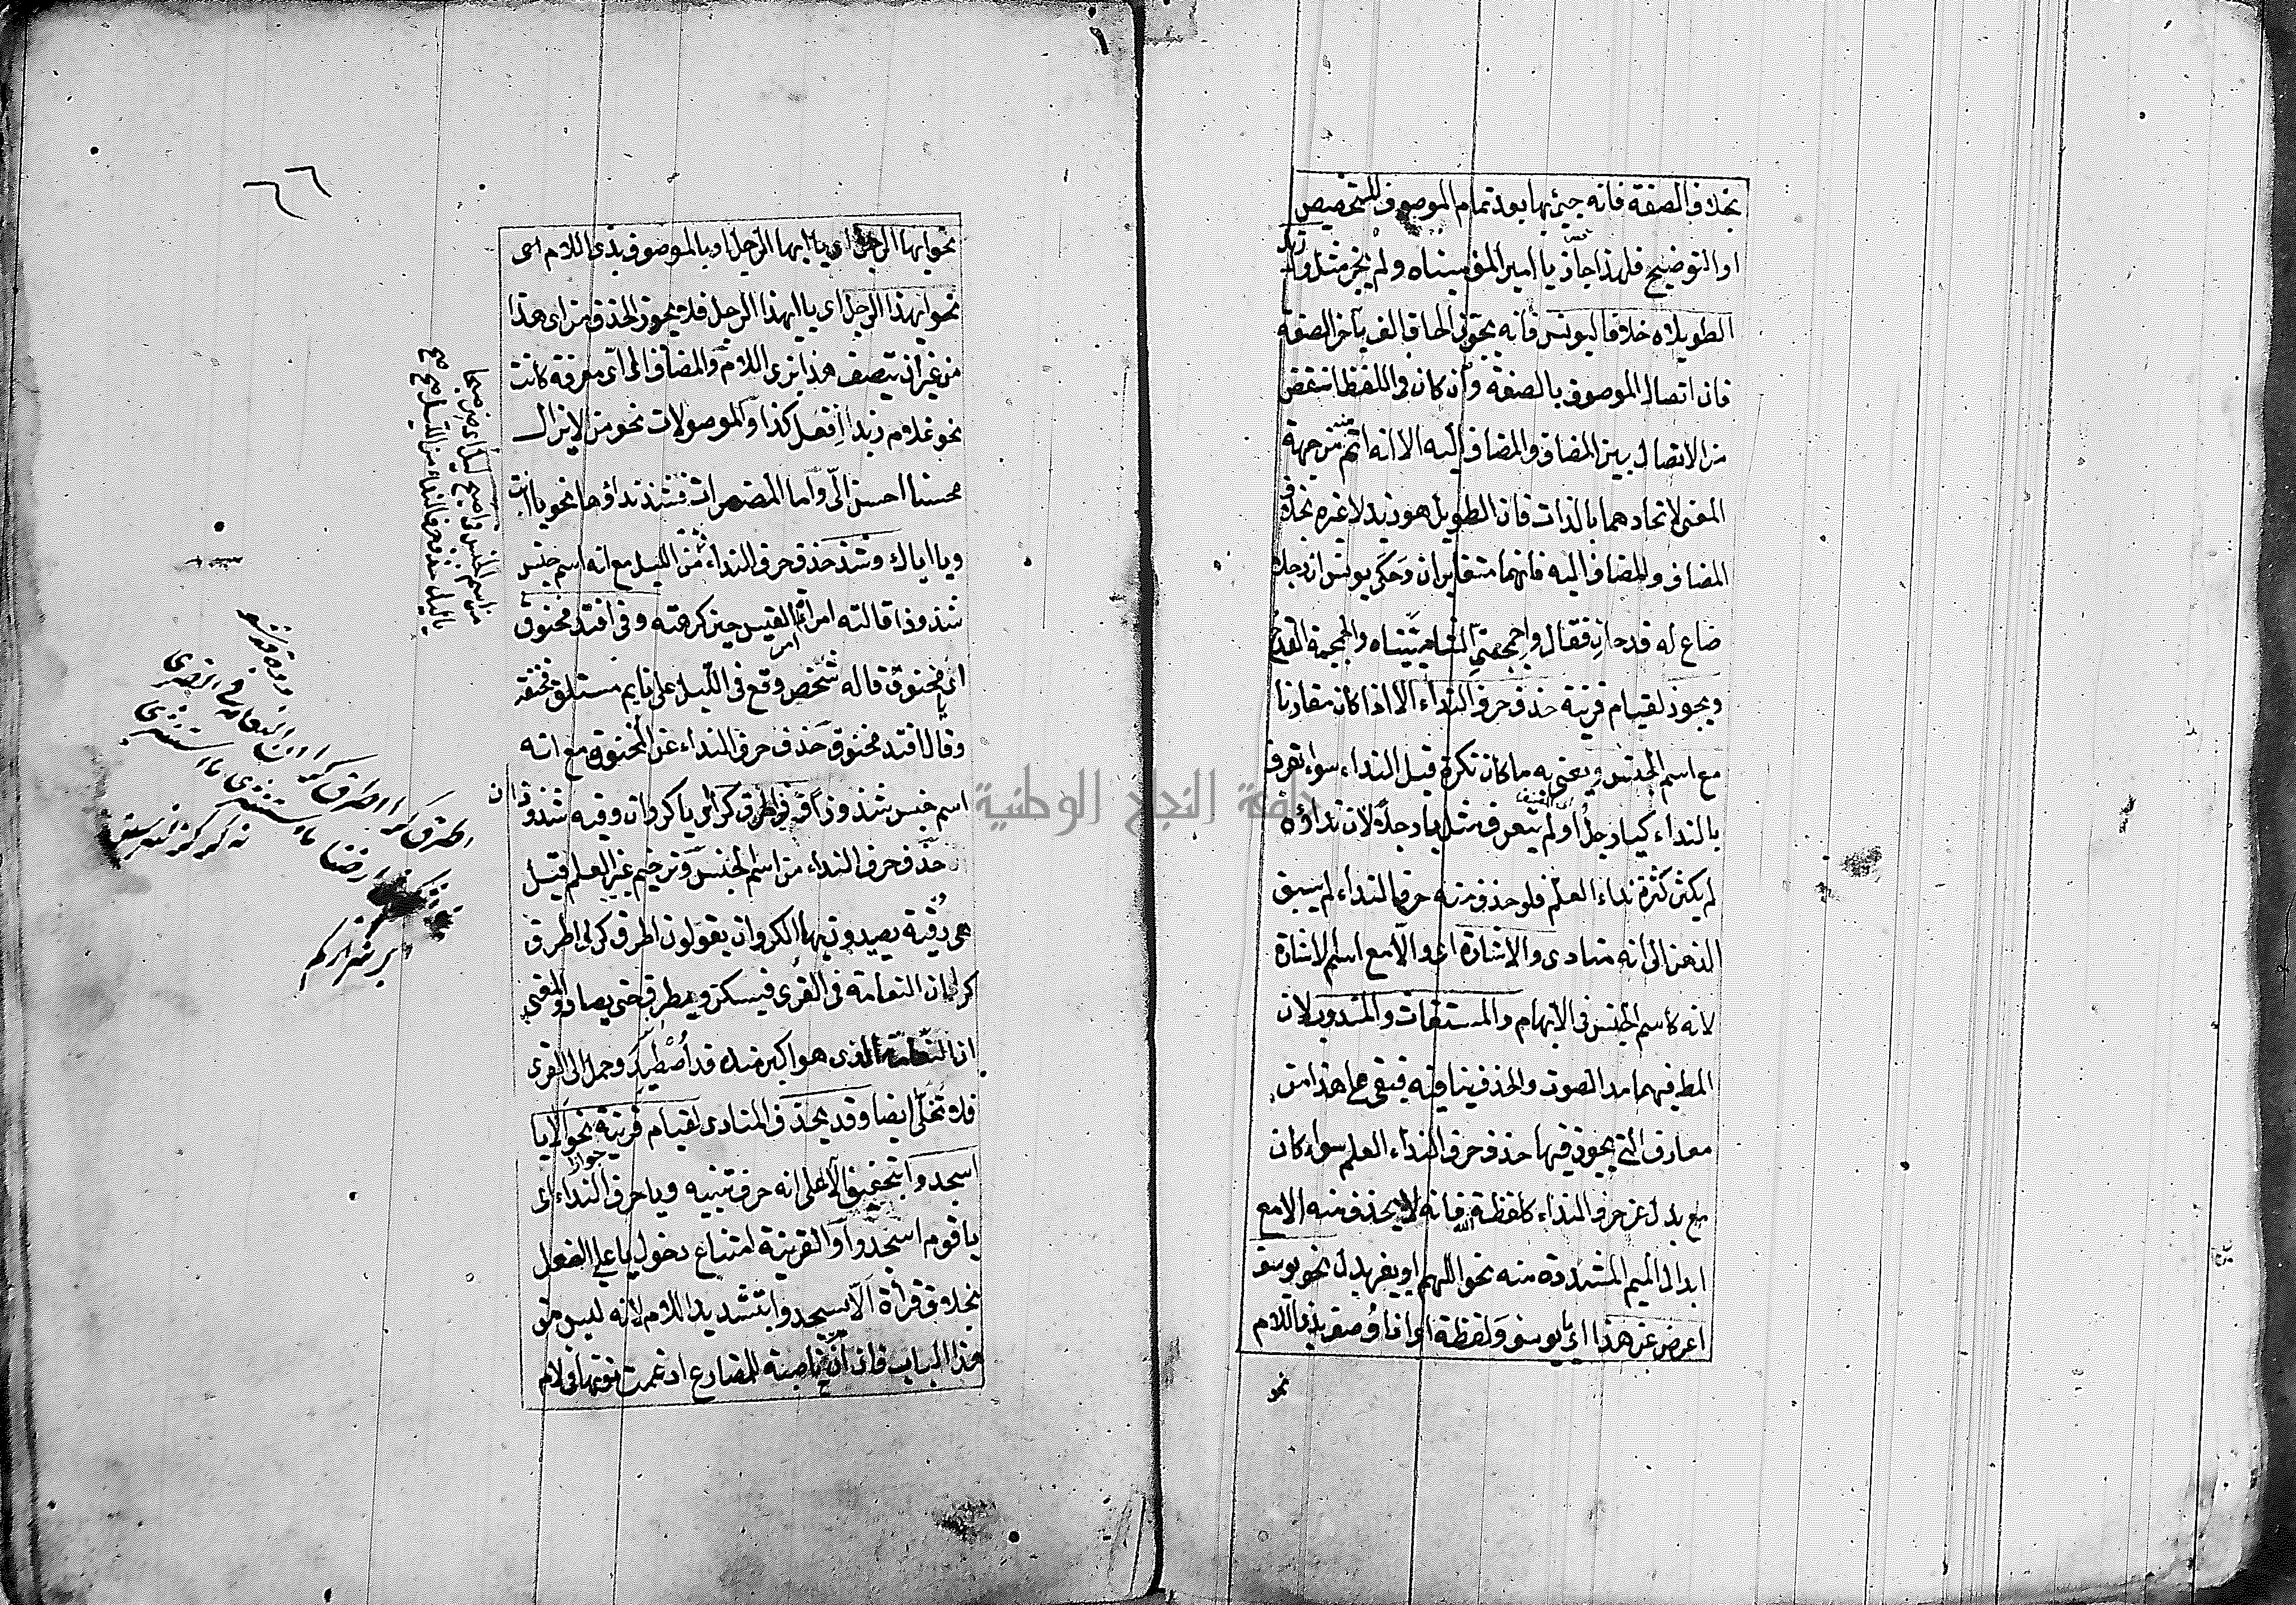 بخلاف الصفة فانه جئ بها بعد تمام الموصوف للتخصيص
او التوضيح فلهذا جاز يا امير المؤمنيناه ولم يجز مثل وازيد
الطويلاه خلافا ليونس فانه يجوز الحاق الف باخر الصفة
فان اتصال الموصوف بالصفة وان كان فى اللفظ انقض
من الاتصال بين المضاف والمضاف اليه الا انه اتم من جهة
المعنى لاتحادهما بالذات فان الطويل هو زيد لا غيره بخلاف
المضاف والمضاف اليه فانهما متغايران وحكى يونس ان رجلا
ضاع له قدحان فقال واجمجمتى الشاميتيناه والجمجمة القدح
ويجوز لقيام قرينة حذف حرف النداء الا اذا كان مقارنا
مع اسم الجنس ويعنى به ما كان نكرة قبل النداء سواء تعرف
بالنداء كيا رجل او لم يتعرف مثل يا رجلا لان نداؤه
لم يكثر كثرة نداء العلم فلو حذف منه حرف النداء لم يسبق
الذهن الى انه منادى والاشارة اى والا مع اسم الاشارة
لانه كاسم الجنس فى الابهام والمستغاث والمندوب لان
المط فيهما مد الصوت والحذف ينافيه فبقى على هذا من
معارف التى يجوز فيها حذف حرف النداء العلم سواء كان
مع بدل عن حرف النداء كلفظة الله فانه لا يحذف منه الا مع
ابدال الميم المشددة منه نحو اللهم او بغير بدل نحو يوسف
اعرض عن هذا اى يا يوسف ولفظة اى اذا وصف بذى اللام
نحو
نحو ايها الرجل اى يا ايها الرجل او بالموصوف بذى اللام اى
نحو ايهذا الرجل اى يا ايهذا الرجل فلا يجوز الحذف من اى هذا
من غير ان يتصف هذا بذى اللام والمضاف الى اى معرفة كانت
نحو غلام زيد افعل كذا والموصولات نحو من لا يزال
محسنا احسن الى واما المضمرات فشذ نداؤها نحو يا انت
ويا اياك وشذ حذف حرف النداء من الليل مع انه اسم جنس
شذوذا قالته امراة امر القيس حين كرهته وفى افتد مخنوق
اى يا مخنوق قاله شخص وقع فى الليل على نايم مستلق فخنقه
وقال افتد مخنوق حذف حرف النداء عن المخنوق مع انه
اسم جنس شذوذا وفى اطرق كرا اى يا كروان وفيه شذوذان
حذف حرف النداء من اسم الجنس وترخيم غير العلم قيل
هى رقية يصيدون بها الكروان يقولون اطرق كرا اطرق
كرا ان النعامة فى القرى فيسكن ويطرق حتى يصاد والمعنى
ان النعامة الذى هو اكبر منك قد اصطيد وحمل الى القرى
فلا تخلى ايضا وقد يحذف المنادى لقيام قرينة جوازا نحو الا يا
اسجدوا بتخفيف الا على انه حرف تنبيه ويا حرف النداء اى
يا قوم اسجدوا والقرينة امتناع دخول يا على الفعل
بخلاف قرأة الا يسجدوا بتشديد اللام لانه ليس من
هذا الباب فان ان ناصبة للمضارع ادغمت نونها فى لام
جامعة النجاح الوطنية